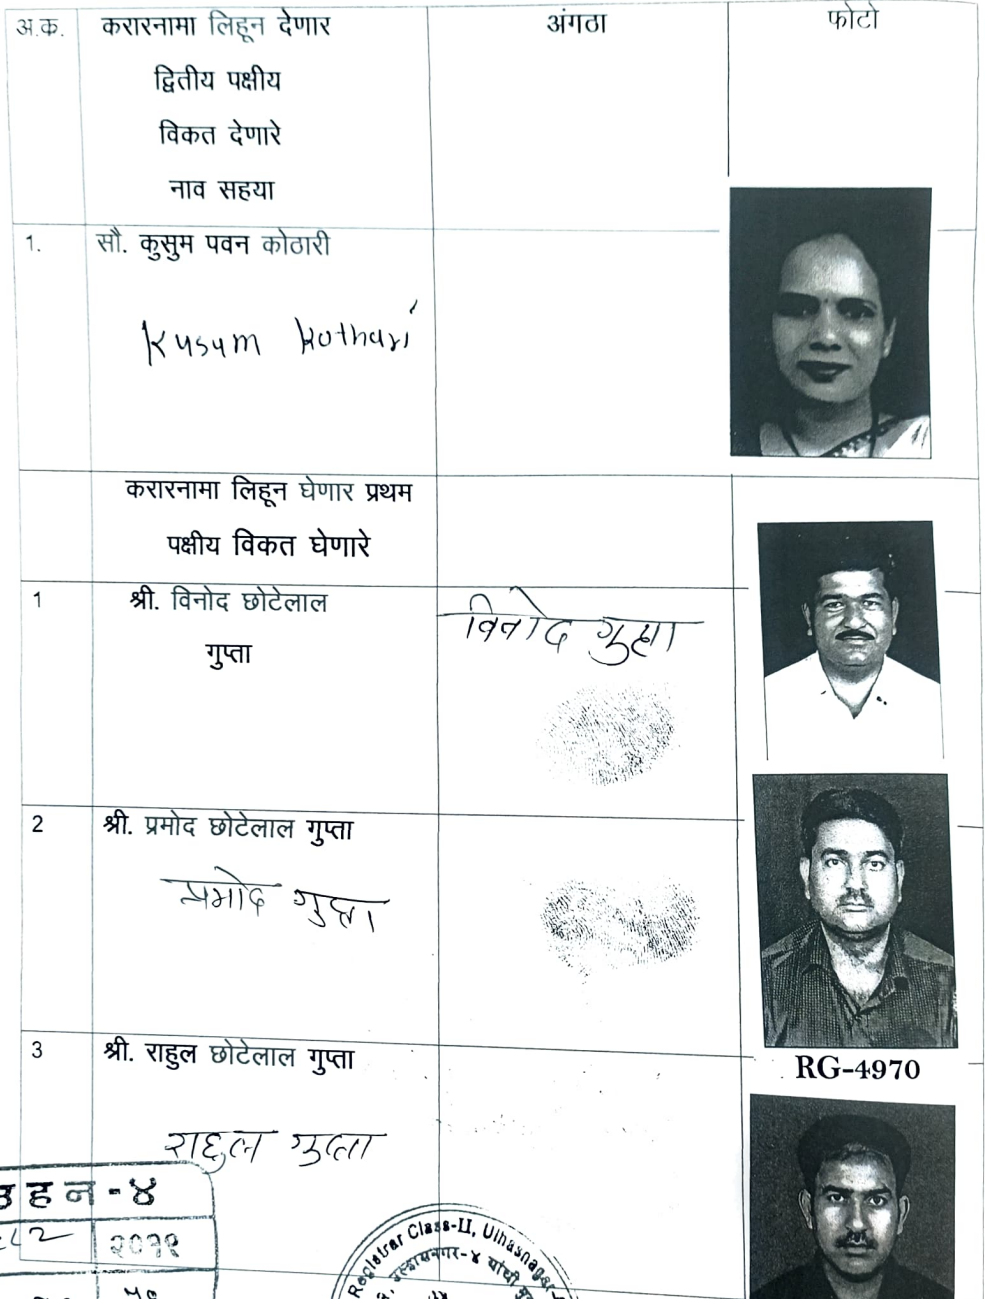 अ.क. करारनामा लिहून देणार अंगठा फोटो
द्वितीय पक्षीय
विकत देणारे
नाव सहया
1. सौ. कुसुम पवन कोठारी
Kusum Kothari
करारनामा लिहून घेणार प्रथम
पक्षीय विकत घेणारे
1 श्री. विनोद छोटेलाल
गुप्ता
विनोद गुप्ता
2 श्री. प्रमोद छोटेलाल गुप्ता
प्रमोद गुप्ता
3 श्री. राहुल छोटेलाल गुप्ता
RG-4970
राहुल गुप्ता
उहन-४
२०११
५९
Registrar Class-II, Ulhasnagar
उल्हासनगर-४ यांची